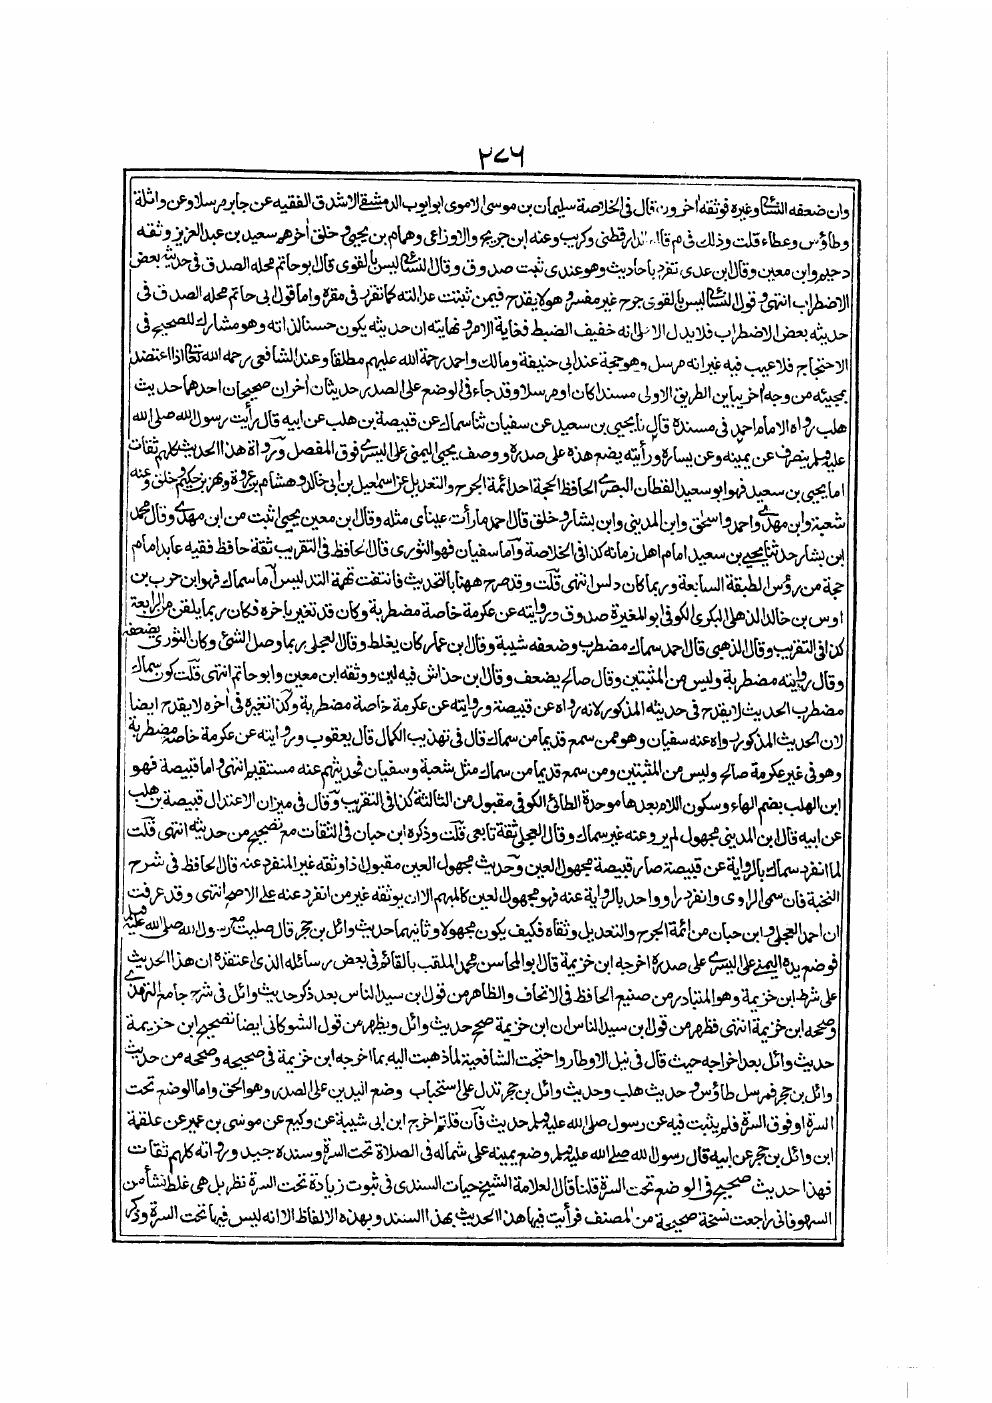 ٢٧٦
وان ضعفه النسائى وغيره فوثقه اخرون قال فى الخلاصة سليمان بن موسى الاموى ابو ايوب الدمشقى الاشدق الفقيه عن جابر مرسلا وعن واثلة
وطاؤس وعطاء قلت وذلك فى م قال الدارقطنى وكريب وعنه ابن جريج والاوزاعى وهمام بن يحيى وخلق اخرهم سعيد بن عبد العزيز وثقه
دحيم وابن معين وقال ابن عدى تفرد باحاديث وهو عندى ثبت صدوق وقال النسائى ليس بالقوى قال ابو حاتم محله الصدق فى حديثه بعض
الاضطراب انتهى و قول النسائى ليس بالقوى جرح غير مفسر وهو لا يقدح فيمن ثبتت عدالته كما تقرر فى مقره واما قول ابى حاتم محله الصدق فى
حديثه بعض الاضطراب فلا يدل الا على انه خفيف الضبط فغاية الامر ونهايته ان حديثه يكون حسنا لذاته وهو مشارك للصحيح فى
الاحتجاج فلا عيب فيه غير انه مرسل وهو حجة عند ابى حنيفة ومالك واحمد رحمة الله عليهم مطلقا وعند الشافعى رحمه الله تعالى اذا اعتضد
بمجيئه من وجه اخر يباين الطريق الاولى مسندا كان او مرسلا وقد جاء فى الوضع على الصدر حديثان اخران صحيحان احدهما حديث
هلب رواه الامام احمد فى مسنده قال نا يحيى بن سعيد عن سفيان ثنا سماك عن قبيصة بن هلب عن ابيه قال رأيت رسول الله صلى الله
عليه وسلم ينصرف عن يمينه وعن يساره ورأيته يضع هذه على صدره ووصف يحيى اليمنى على اليسرى فوق المفصل ورواة هذا الحديث كلهم ثقات
اما يحيى بن سعيد فهو ابو سعيد القطان البصرى الحافظ الحجة احد ائمة الجرح والتعديل عن اسمعيل بن ابى خالد وهشام بن عروة وبهز بن حكيم وخلق وعنه
شعبة وابن مهدى واحمد واسحق وابن المدينى وابن بشار وخلق قال احمد ما رأت عيناى مثله وقال ابن معين يحيى اثبت من ابن مهدى وقال محمد
ابن بشار حدثنا يحيى بن سعيد امام اهل زمانه كذا فى الخلاصة وآما سفيان فهو الثورى قال الحافظ فى التقريب ثقة حافظ فقيه عابد امام
حجة من رؤس الطبقة السابعة وربما كان دلس انتهى قلت وقد صرح ههنا بالتحديث فانتفت تهمة التدليس آما سماك فهو ابن حرب بن
اوس بن خالد الذهلى البكرى الكوفى ابو المغيرة صدوق وروايته عن عكرمة خاصة مضطربة وكان قد تغير باخره فكان ربما يلقن من الرابعة
كذا فى التقريب وقال الذهبى قال احمد سماك مضطرب وضعفه شيبة وقال ابن عمار كان يغلط وقال العجلى ربما وصل الشئ وكان الثورى يضعفه
وقال روايته مضطربة وليس من المثبتين وقال صالح يضعف وقال ابن خداش فيه لين ووثقه ابن معين وابو حاتم انتهى قلت كون سماك
مضطرب الحديث لا يقدح فى حديثه المذكور لانه رواه عن قبيصة وروايته عن عكرمة خاصة مضطربة وكذا تغيره فى اخره لا يقدح ايضا
لان الحديث المذكور رواه عنه سفيان وهو ممن سمع قديما من سماك قال فى تهذيب الكمال قال يعقوب وروايته عن عكرمة خاصة مضطربة
وهو فى غير عكرمة صالح وليس من المثبتين ومن سمع قديما من سماك مثل شعبة وسفيان فحديثهم عنه مستقيم انتهى واما قبيصة فهو
ابن الهلب بضم الهاء وسكون اللام بعدها موحدة الطائى الكوفى مقبول من الثالثة كذا فى التقريب وقال فى ميزان الاعتدال قبيصة بن هلب
عن ابيه قال ابن المدينى مجهول لم يرو عنه غير سماك وقال العجلى ثقة تابعى قلت وذكره ابن حبان فى الثقات مع تصحيح من حديثه انتهى قلت
لما انفرد سماك بالرواية عن قبيصة صار قبيصة مجهول العين وحديث مجهول العين مقبول اذا وثقه غير المنفرد عنه قال الحافظ فى شرح
النخبة فان سمى الراوى وانفرد راو واحد بالرواية عنه فهو مجهول العين كالمبهم الا ان يوثقه غير من انفرد عنه على الاصح انتهى وقد عرفت
ان احمد العجلى وابن حبان من ائمة الجرح والتعديل وثقاه فكيف يكون مجهولا وثانيهما حديث وائل بن حجر قال صليت مع رسول الله صلى الله عليه وسلم
فوضع يده اليمنى على اليسرى على صدره اخرجه ابن خزيمة قال ابو المحاسن محمد الملقب بالقائم فى بعض رسائله الذى اعتقده ان هذا الحديث
على شرط ابن خزيمة وهو المتبادر من صنيع الحافظ فى الاتحاف والظاهر من قول ابن سيد الناس بعد ذكر حديث وائل فى شرح جامع الترمذى
وصححه ابن خزيمة انتهى فظهر من قول ابن سيد الناس ان ابن خزيمة صحح حديث وائل ويظهر من قول الشوكانى ايضا تصحيح ابن خزيمة
حديث وائل بعد اخراجه حيث قال فى نيل الاوطار واحتجت الشافعية لما ذهبت اليه بما اخرجه ابن خزيمة فى صحيحه وصححه من حديث
وائل بن حجر فمرسل طاؤس و حديث هلب وحديث وائل بن حجر تدل على استحباب وضع اليدين على الصدر وهو الحق واما الوضع تحت
السرة او فوق السرة فلم يثبت فيه عن رسول صلى الله عليه وسلم حديث فآن قلتم اخرج ابن ابى شيبة عن وكيع عن موسى بن عمير عن علقمة
ابن وائل بن حجر عن ابيه قال رسول الله صلى الله عليه وسلم وضع يمينه على شماله فى الصلاة تحت السرة وسنده جيد ورواته كلهم ثقات
فهذا حديث صحيح فى الوضع تحت السرة قلنا قال العلامة الشيخ حيات السندى فى ثبوت زيادة تحت السرة نظر بل هى غلط نشأ من
السهو فانى راجعت نسخة صحيحة من المصنف فرأيت فيها هذا الحديث بهذا السند وبهذه الالفاظ الا انه ليس فيها تحت السرة وذكر